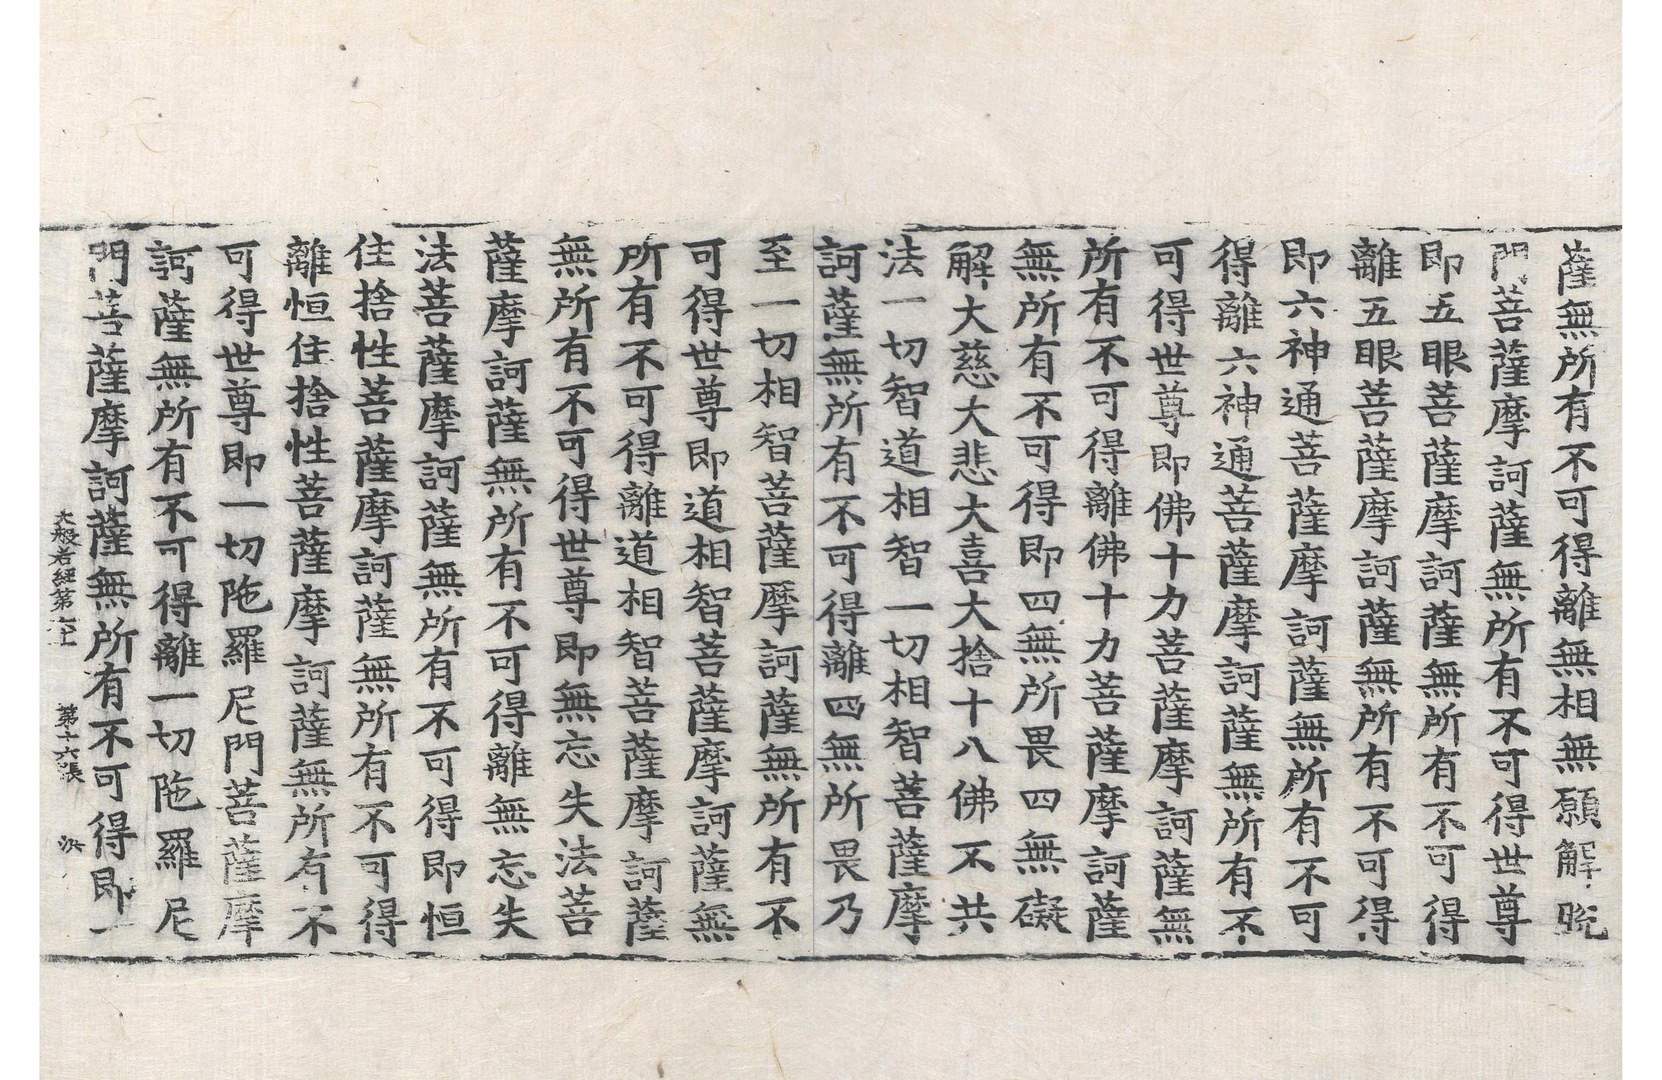 薩無所有不可得離無相無願解脫
門菩薩摩訶薩無所有不可得世尊
即五眼菩薩摩訶薩無所有不可得
離五眼菩薩摩訶薩無所有不可得
即六神通菩薩摩訶薩無所有不可
得離六神通菩薩摩訶薩無所有不
可得世尊即佛十力菩薩摩訶薩無
所有不可得離佛十力菩薩摩訶薩
無所有不可得即四無所畏四無礙
解大慈大悲大喜大捨十八佛不共
法一切智道相智一切相智菩薩摩
訶薩無所有不可得離四無所畏乃
至一切相智菩薩摩訶薩無所有不
可得世尊即道相智菩薩摩訶薩無
所有不可得離道相智菩薩摩訶薩
無所有不可得世尊即無忘失法菩
薩摩訶薩無所有不可得離無忘失
法菩薩摩訶薩無所有不可得即恒
住捨性菩薩摩訶薩無所有不可得
離恒住捨性菩薩摩訶薩無所有不
可得世尊即一切陁羅尼門菩薩摩
訶薩無所有不可得離一切陁羅尼
門菩薩摩訶薩無所有不可得即一
大般若經第六十 第十六張 洪